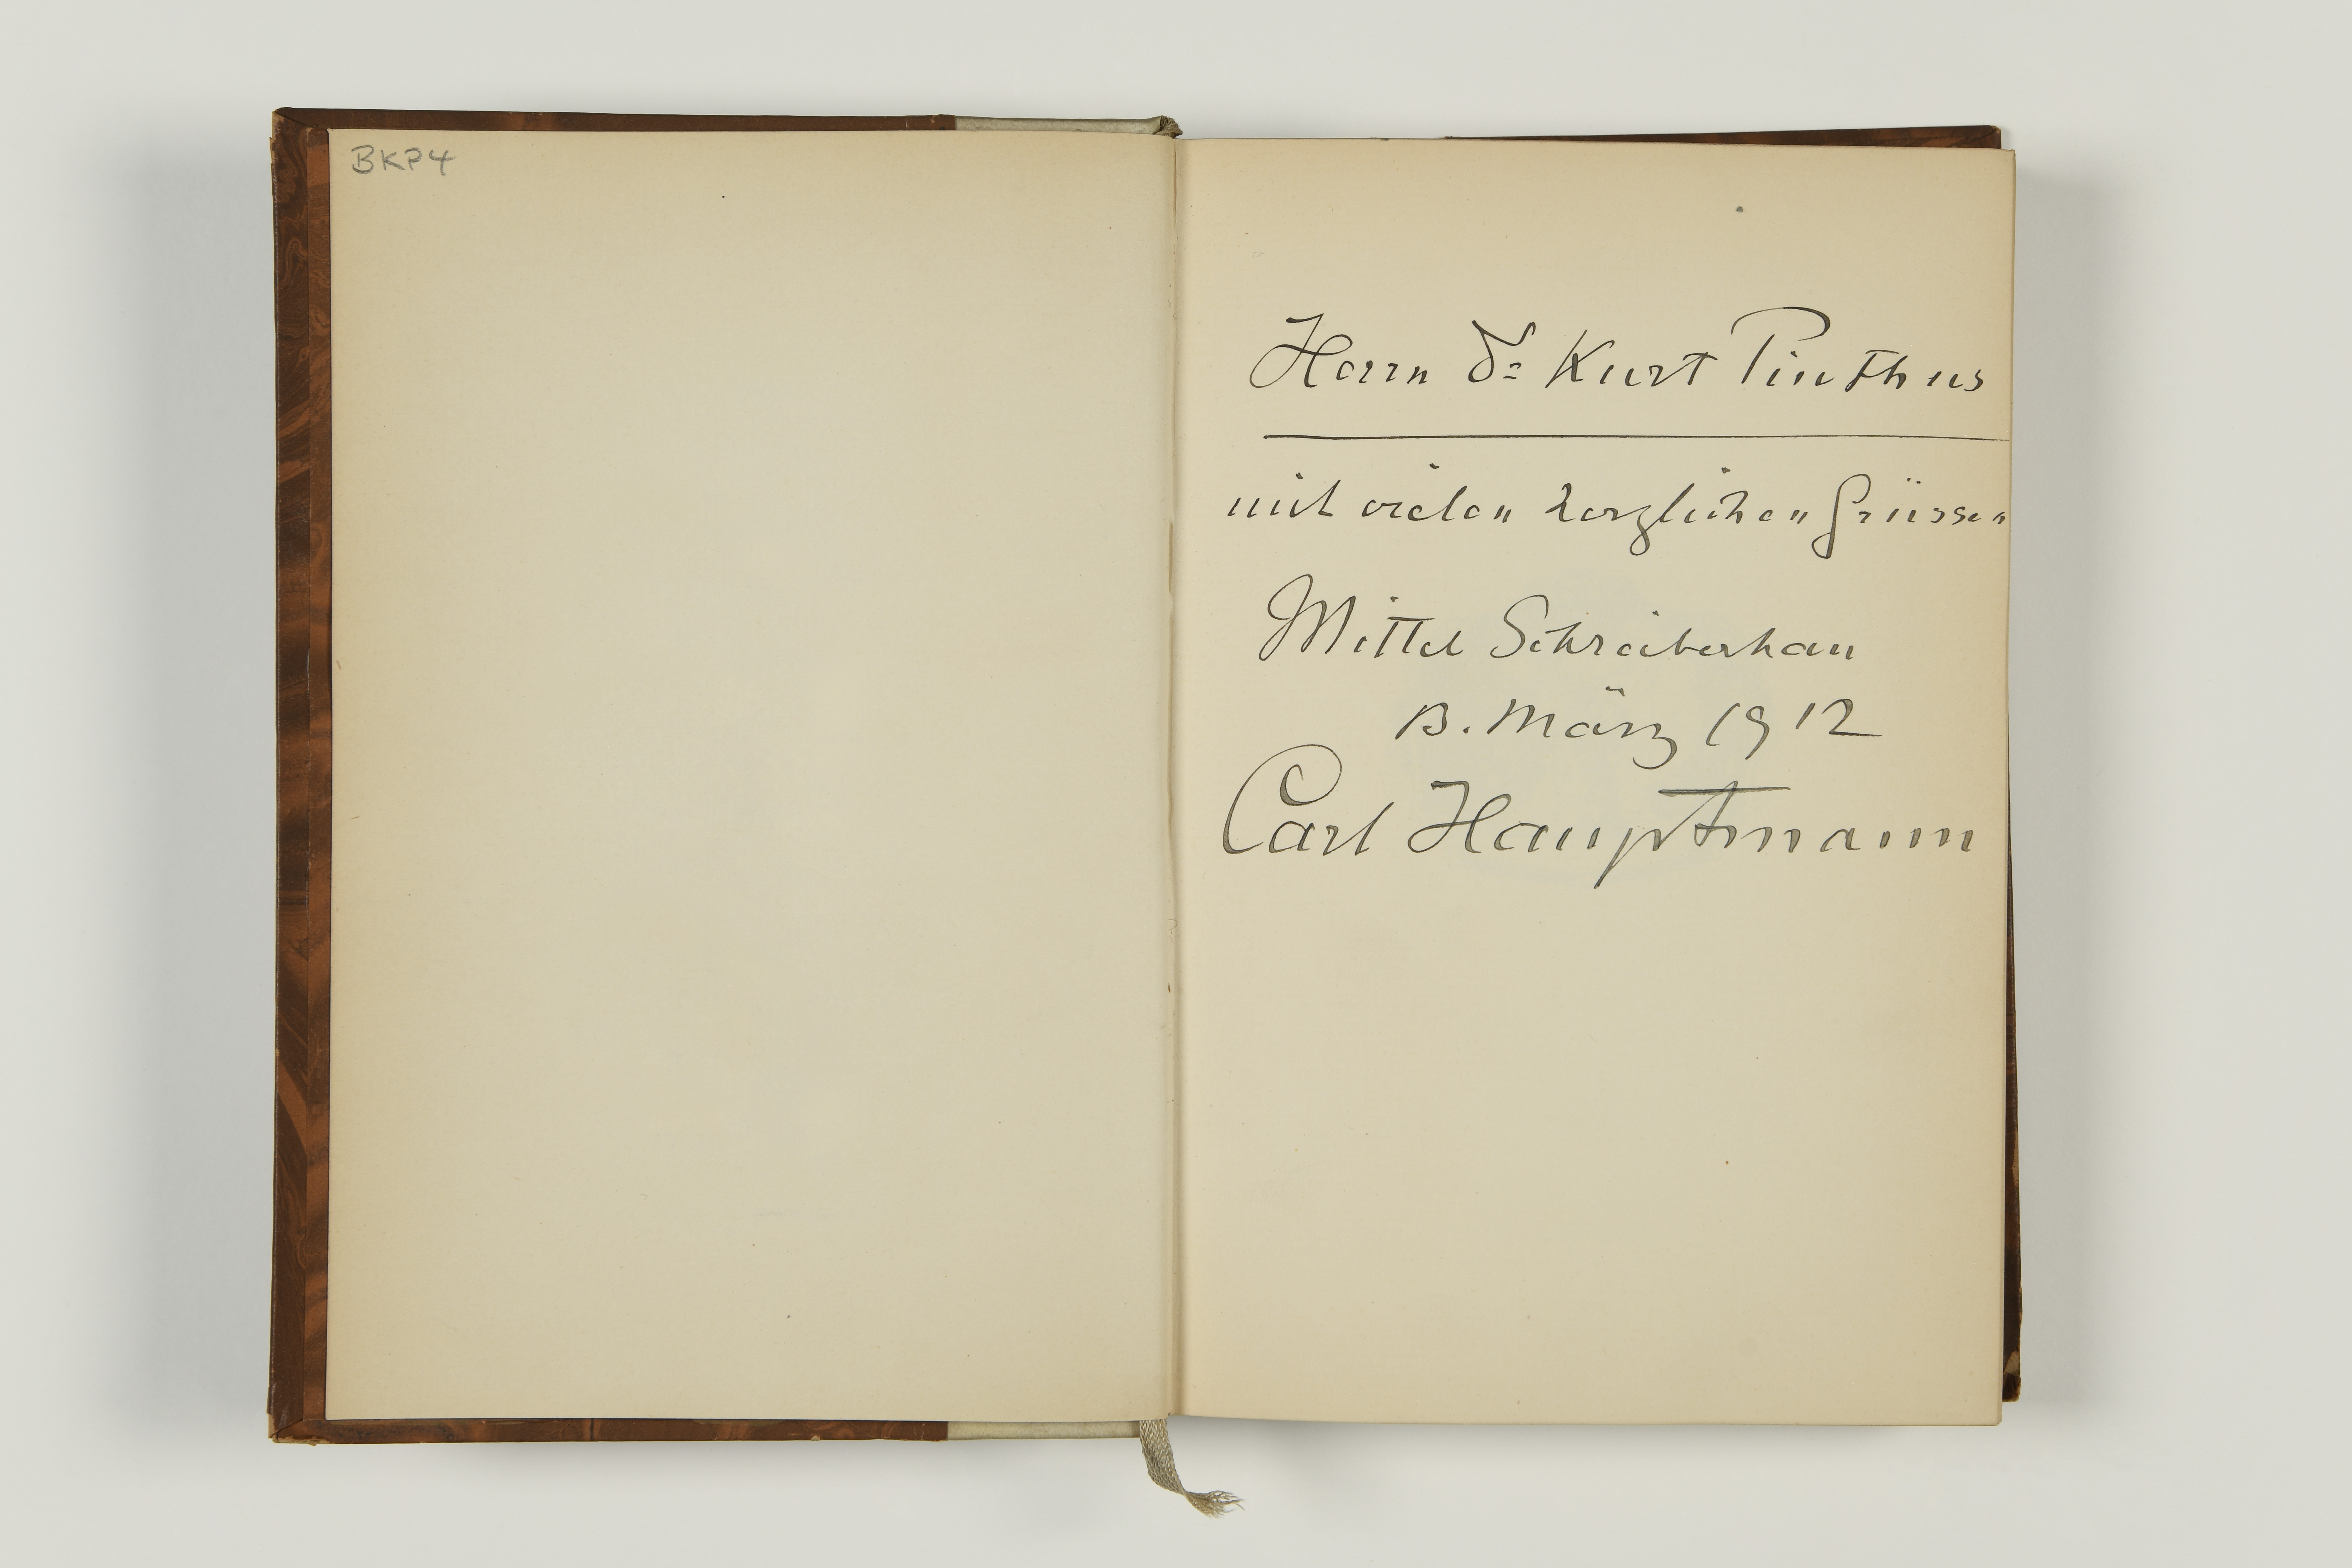 BKP4
Herrn Dr Kurt Pinthus
mit vielen herzlichen Grüssen
Mittel Schreiberhau
13. März 1912
Carl Hauptmann